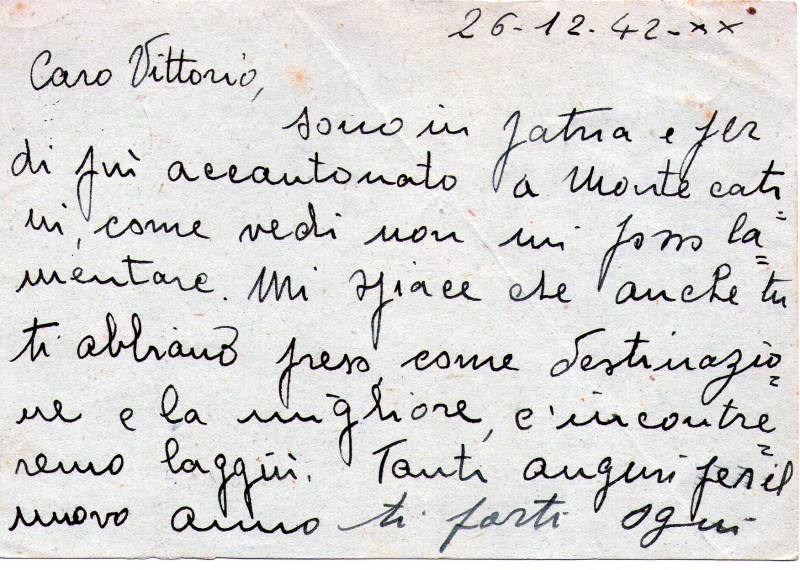 26-12-42-XX
Caro Vittorio,
sono in patria e per
di più accantonato a Montecati=
ni, come vedi non mi posso la=
mentare. Mi spiace che anche tu
ti abbiano preso, come destinazio=
ne e la migliore, c'incontre=
remo laggiù. Tanti auguri per il
nuovo anno ti porti ogni